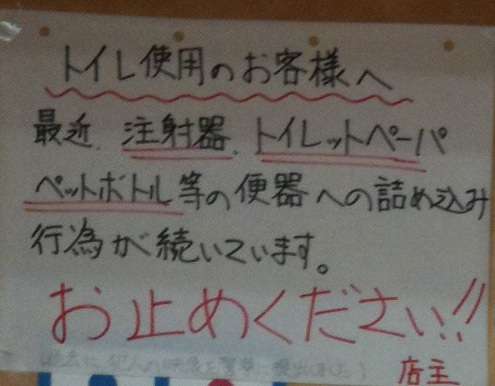 トイレ使用のお客様へ
最近、注射器、トイレットペーパ
ペットボトル等の便器への詰め込み
行為が続いています。
お止めください!!
店主